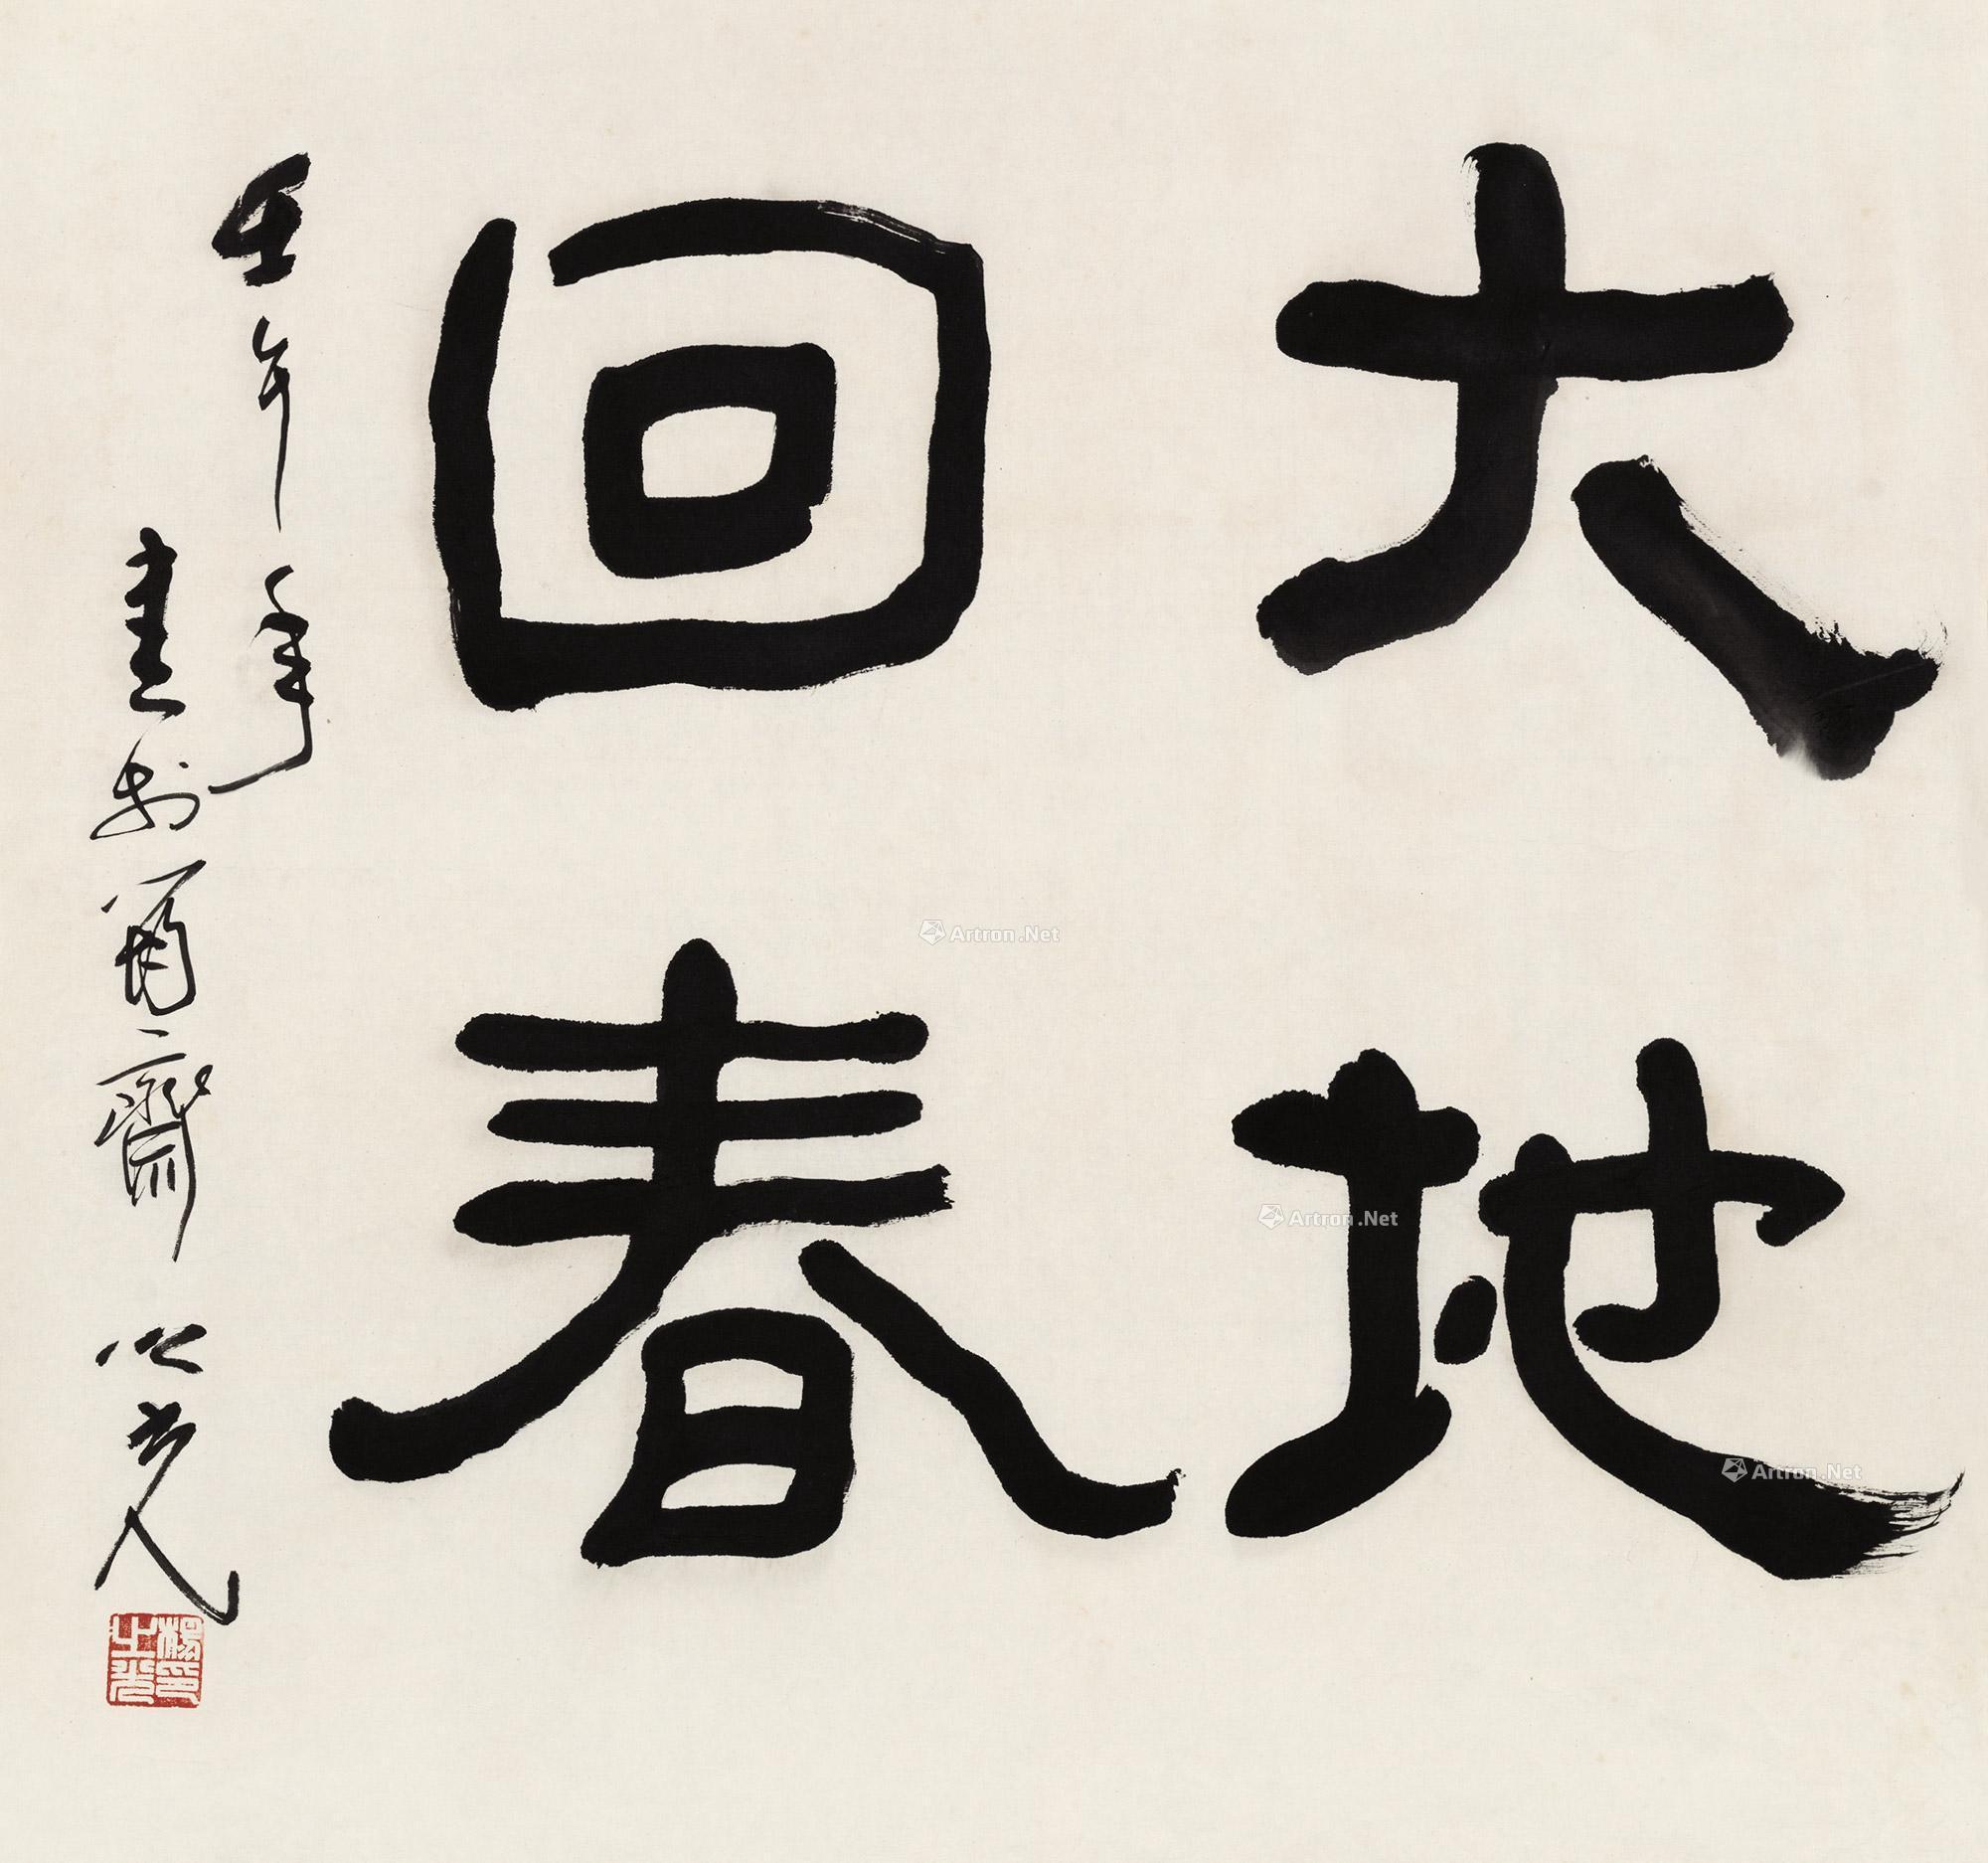 大地
回春
壬午年
書於齋 之光
楊印
之光
Artron.Net
Artron.Net
Artron.Net